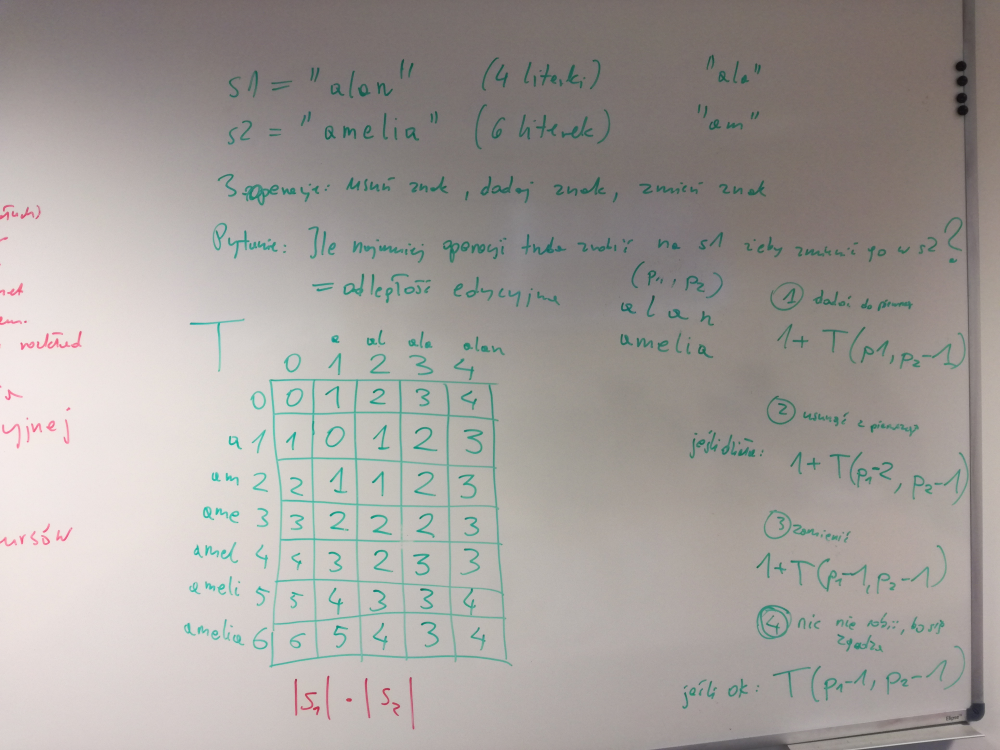 s1 = "alan" (4 literki) "ala"
s2 = "amelia" (6 literek) "am"
3 operacje: usuń znak, dodaj znak, zmień znak
Pytanie: Ile najmniej operacji trzeba zrobić na s1 żeby zmienić go w s2?
= odległość edycyjna
(p1, p2)
alan
amelia
T
a al ala alan
0 1 2 3 4
0 0 1 2 3 4
a 1 1 0 1 2 3
am 2 2 1 1 2 3
ame 3 3 2 2 2 3
amel 4 4 3 2 3 3
ameli 5 5 4 3 3 4
amelia 6 6 5 4 3 4
|s1| · |s2|
1 dodać do
1 + T(p1, p2-1)
2 usunąć z
1 + T(p1-2, p2-1)
3 zamienić
1 + T(p1-1, p2-1)
4 nic nie robić, bo się
zgadza
jeśli ok: T(p1-1, p2-1)
yjnej
ursów